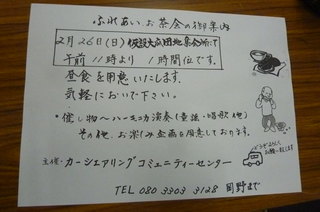 ふれあいお茶会の御案内
2月26日(日) 仮設大森団地集会所にて
午前11時より1時間位です。
昼食を用意いたします。
気軽においで下さい。
・催し物〜ハーモニカ演奏(童謡・唱歌他)
その他、お楽しみ企画を用意しております。
主催・カーシェアリングコミュニティーセンター
お願い致します
TEL 080 3303 3128 岡野まで